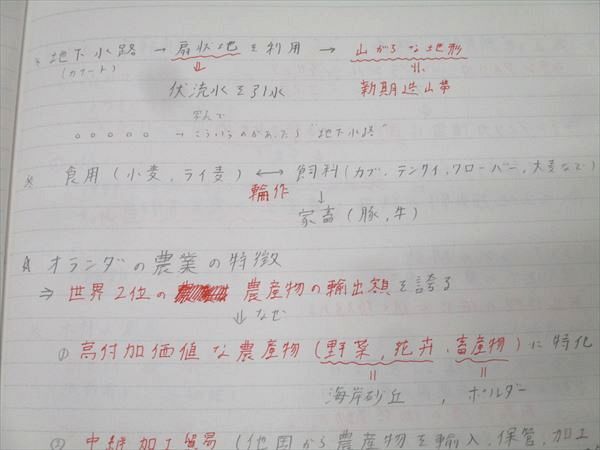 * 地下水路 → 扇状地を利用 → 山がちな地形
(カナート) ⇓ =
伏流水を引水 新期造山帯
並んで
○ ○ ○ ○ ○ → こういうのがあったら"地下水路"
* 食用(小麦,ライ麦) ←→ 飼料(カブ,テンサイ,クローバー,大麦など)
輪作 ↓
家畜(豚,牛)
オランダの農業の特徴
⇒ 世界2位の 農産物の輸出額を誇る
⇓ なぜ
① 高付加価値な農産物(野菜,花卉,畜産物)に特化
= =
海岸砂丘 , ポルダー
② 中継加工貿易(他国から農産物を輸入,保管,加工